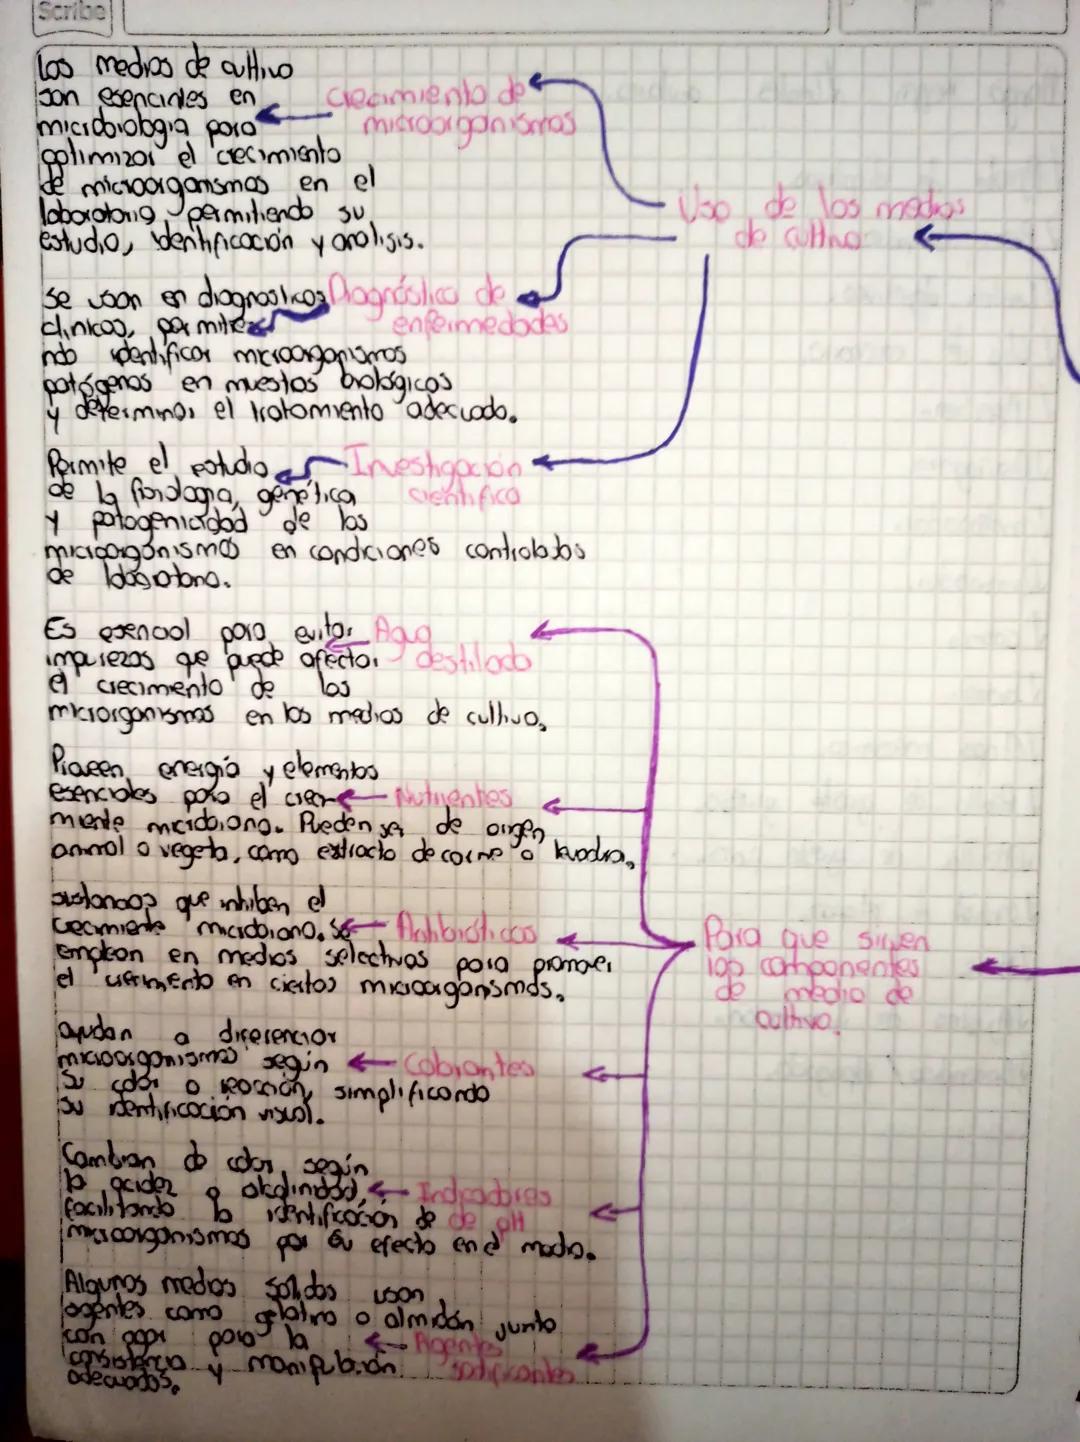 Scribe
Uso de los medios
de cultivo
Crecimiento de
microorganismos
Los medios de cultivo
son esenciales en
microbiologia para
optimizar el crecimiento
de microorganismos en el
laboratorio, permitiendo su
estudio, identificación y analisis.
Diagnóstico de
enfermedades
Se usan en diagnosticos
clinicos, permitie
ndo identificar microorganismos
patógenos en muestas biológicos
y determinar el tratamiento adecuado.
Investigación
cientifica
Permite el estudio
de la fisiologia, genética
y patogenicidad de los
microorganismos en condiciones controlados
de laboratorio.
Para que sirven
los componentes
de medio de
cultivo.
Agua
destilada
Es esencial para evitar
impurezas que puede afectar
el crecimiento de los
microrganismos en los medios de cultivo.
Nutrientes
Proveen energia y elementos
esenciales para el creci-
miento microbiano. Pueden ser de origen
animal o vegeta, como extracto de carne o levadura.
Antibióticos
sustancias que inhiben el
crecimiento microbiano. Se
emplean en medios selectivos para promover
el crecimiento en ciertos microorganismos.
Colorantes
ayudan a diferenciar
microorganismos según
su color o reacción, simplificando
su identificación visual.
Indicadores
de pH
Cambian de color según
la acidez o alcalinidad,
facilitando la identificación de
microorganismos por su efecto en el medio.
Agentes
solificantes
Algunos medios solidos usan
agentes como gelatina o almidón junto
con agar para la
consistencia y manipulación
adecuados.